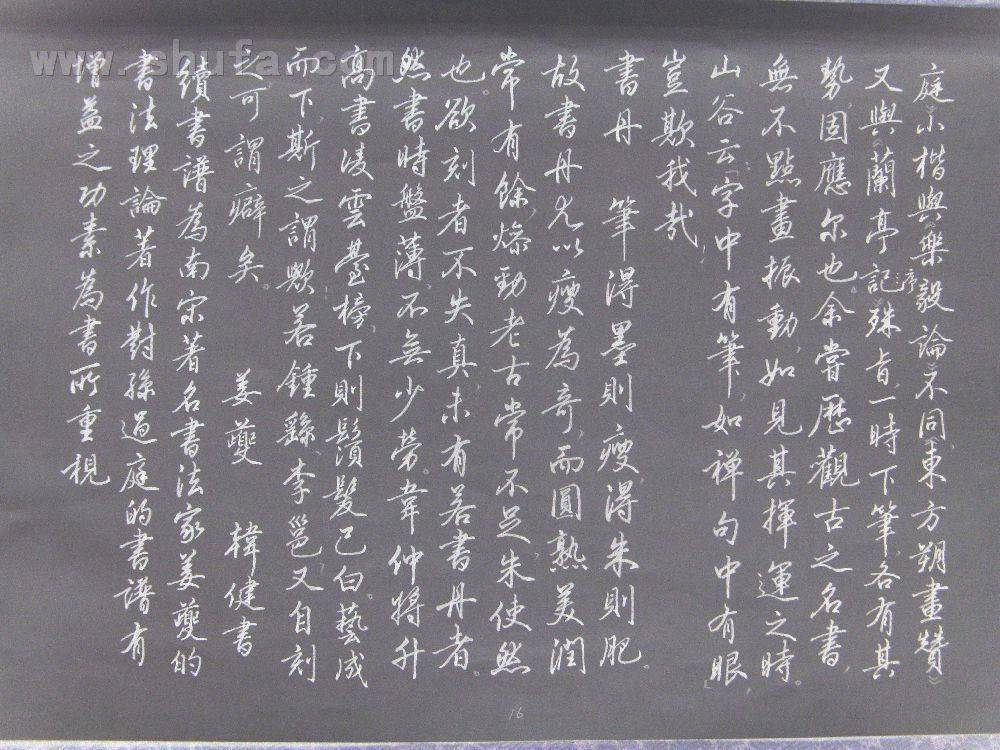 庭》小楷與《樂毅論》不同《東方朔畫贊》
又與《蘭亭記序》殊旨,一時下筆,各有其
勢,固應尔也。余嘗歷觀古之名書,
無不點畫振動,如見其揮運之時。
山谷云:「字中有筆,如禅句中有眼」,
豈欺我哉。
書丹 筆得墨則瘦,得朱則肥。
故書丹尤以瘦為奇,而圓熟美潤
常有餘,燥勁老古常不足,朱使然
也。欲刻者不失真,未有若書丹者
然書時盤薄,不無少勞。韋仲將升
高書凌雲臺榜,下則鬚髮已白。藝成
而下,斯之謂歟若鍾繇、李邕又自刻
之,可謂癖矣。 姜夔 韓健書
續書譜為南宋著名書法家姜夔的
書法理論著作對孫過庭的書譜有
增益之功素為書所重視
16
www.shufa.com